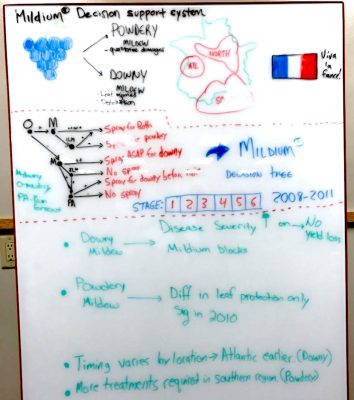 Mildium© Decision support system
POWDERY
MILDEW
- qualitative damages
DOWNY
MILDEW
Leaf
NORTH
ATL
Viva
la
France!
O
M
Spray for Both
Spray powdery
Spray ASAP for downy
No spray
Spray for downy before
No spray
PA
MILDIUM©
DECISION TREE
STAGE: 1 2 3 4 5 6 2008-2011
Downy
Mildew
Disease Severity ↑ on
Mildium blocks
No
yield loss
Powdery
Mildew
Diff in leaf protection only
Sig in 2010
• Timing varies by location → Atlantic earlier (Downy)
• More treatments required in southern region (Powdery)